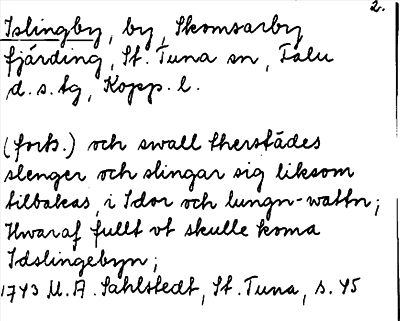 2.
Islingby, by, Skomsarby
fjärding, St. Tuna sn, Falu
d.s.tg, Kopp. l.
(forts.) och swall therstädes
slenger och slingar sig liksom
tilbakas, i Idor och lungn-wattn;
Hwaraf fullt vt skulle koma
Idslingebyn;
1743 M.A. Sahlstedt, St. Tuna, s. 45